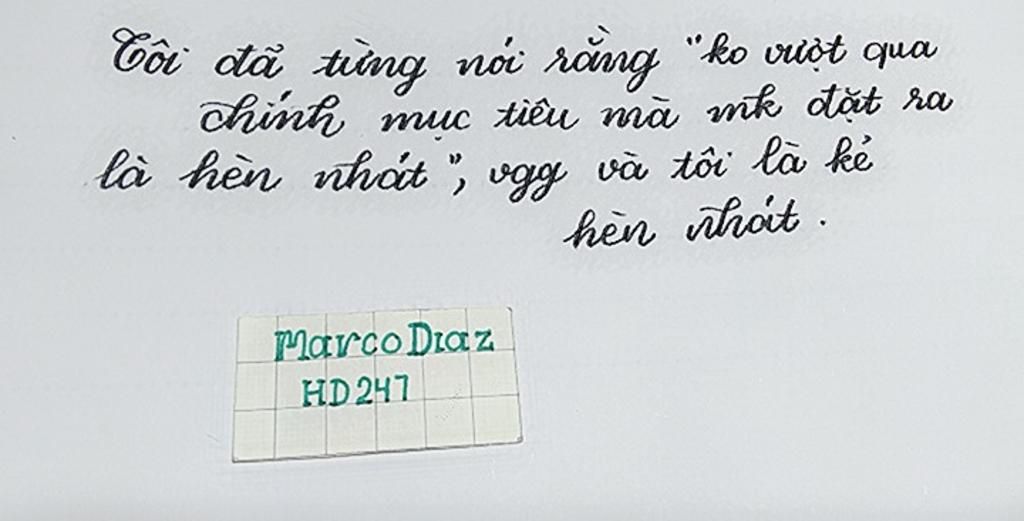 Tôi đã từng nói rằng "ko vượt qua
chính mục tiêu mà mk đặt ra
là hèn nhát", vgg và tôi là kẻ
hèn nhát.
Marco Diaz
HD247